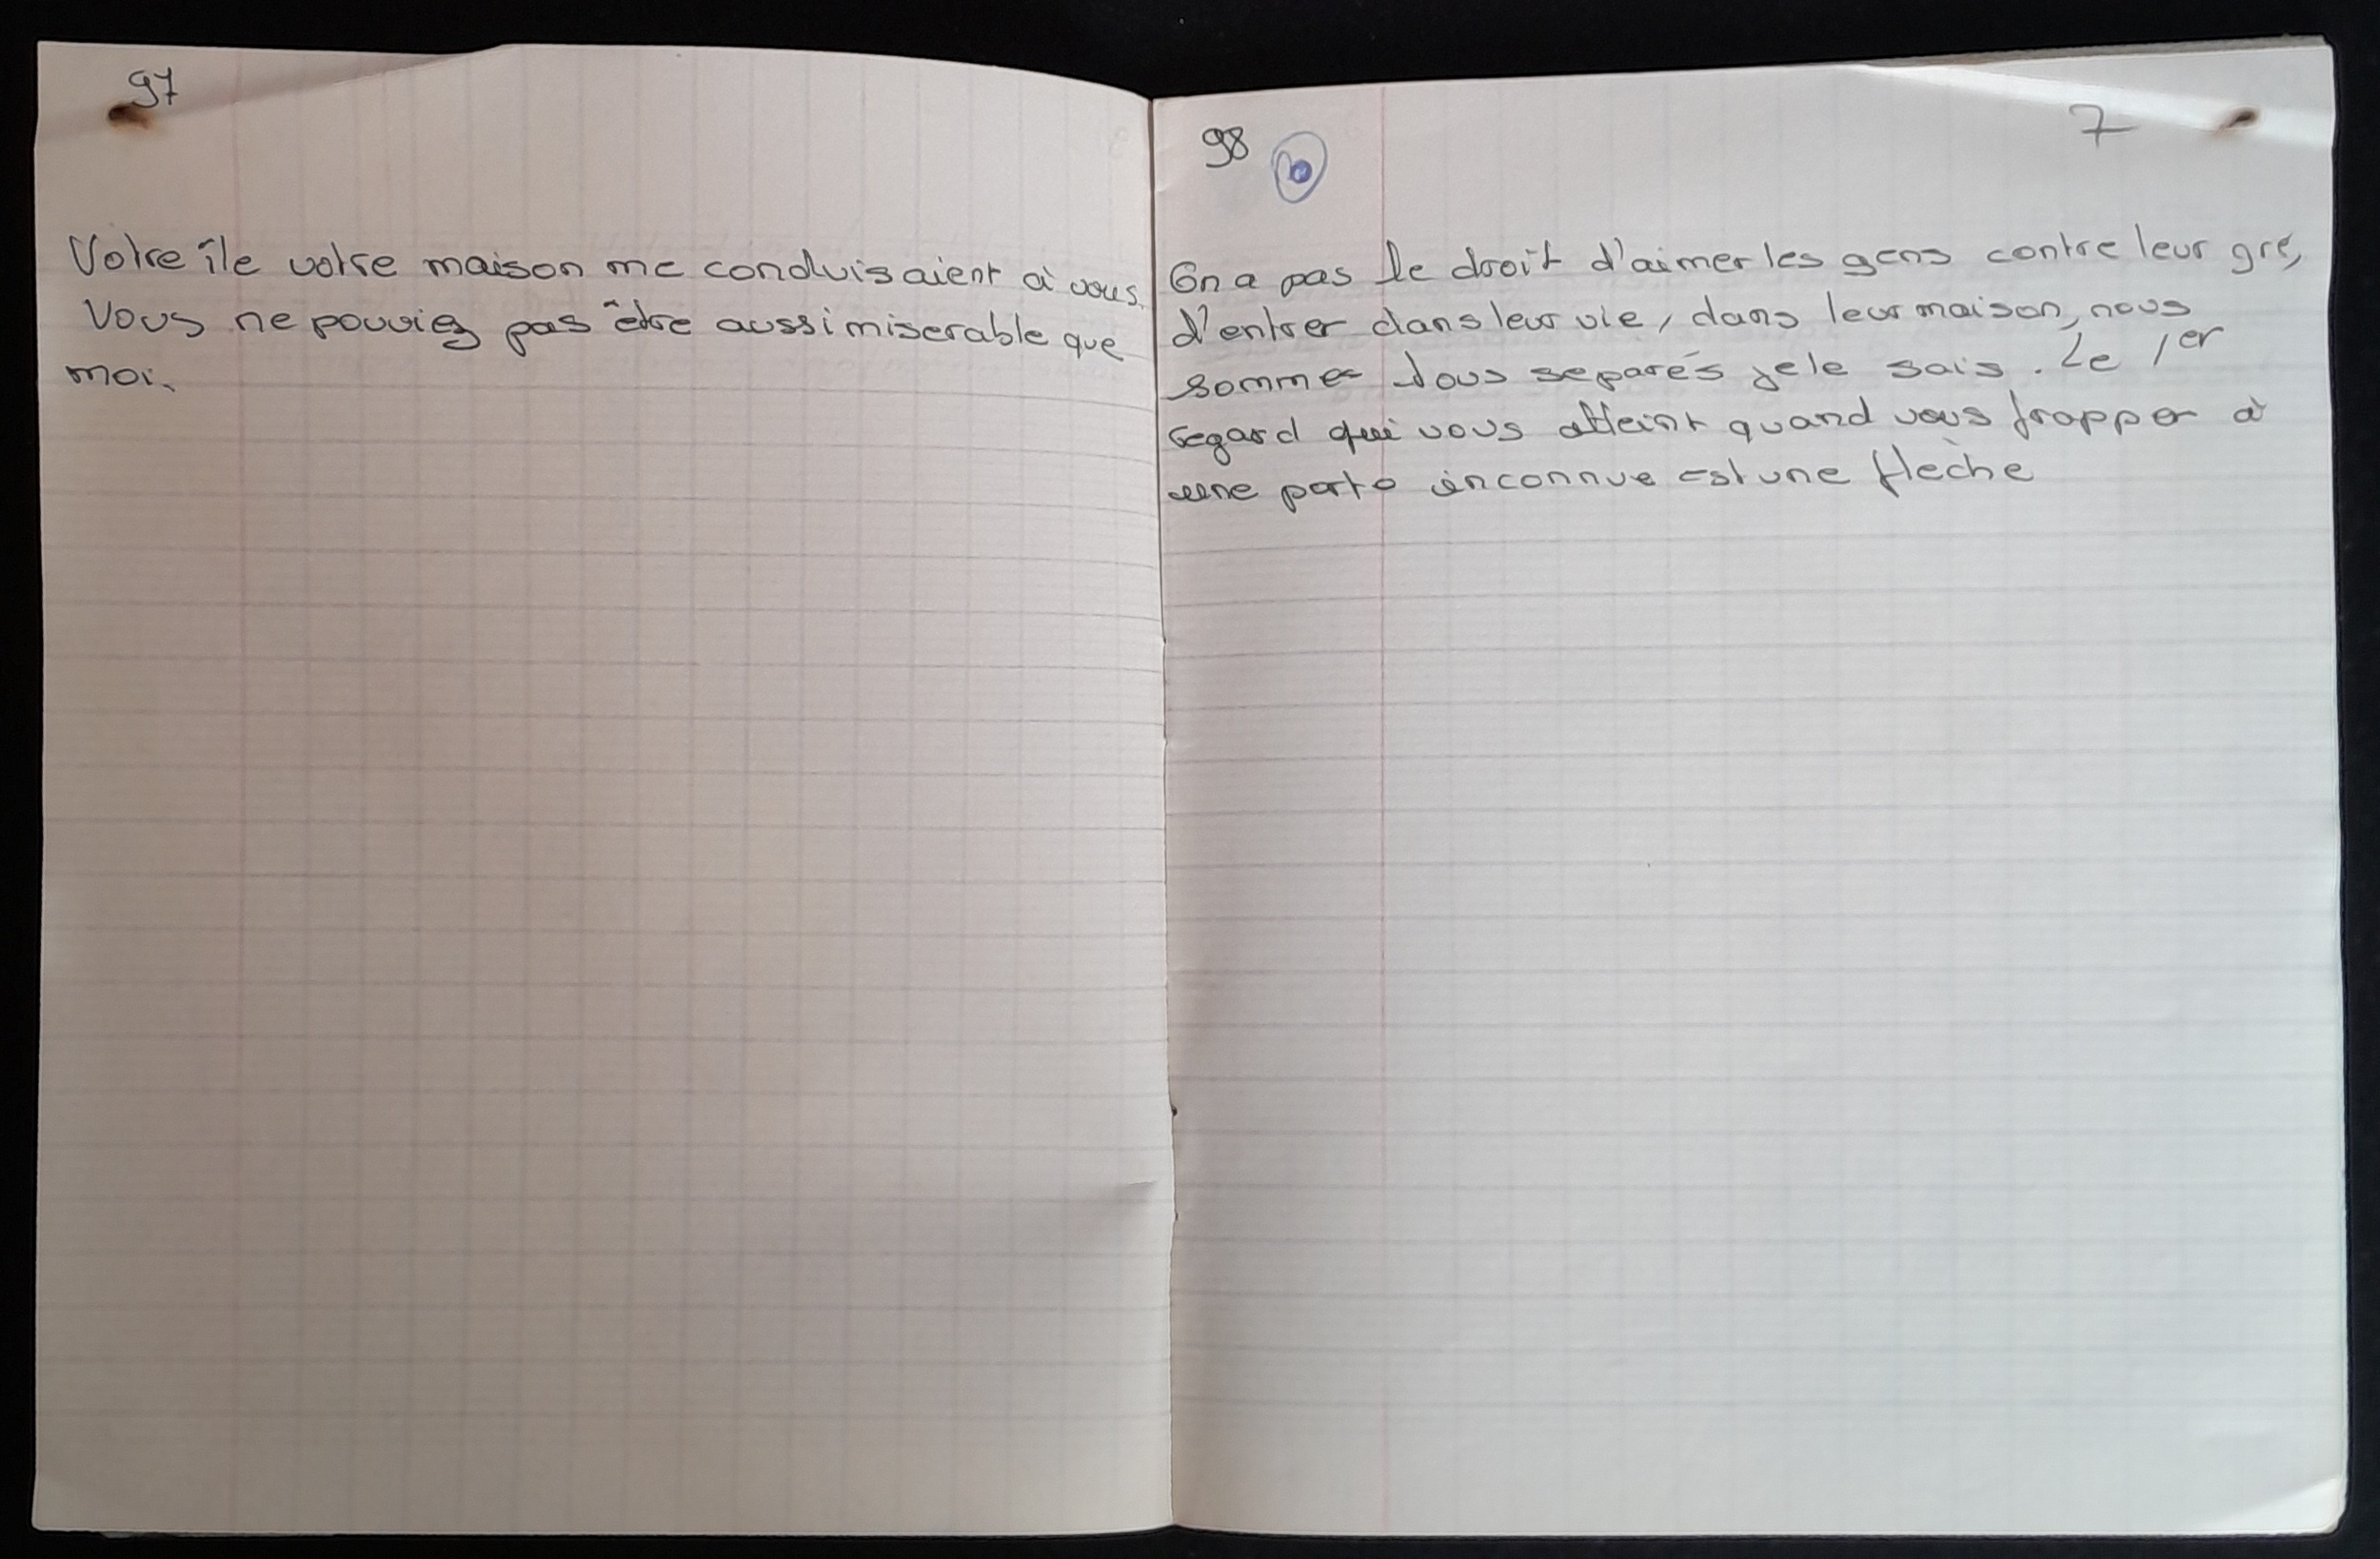 97
Votre île votre maison me conduisaient à vous.
Vous ne pouviez pas être aussi miserable que
moi.
98
7
On a pas le droit d'aimer les gens contre leur gré,
d'entrer dans leur vie, dans leur maison, nous
sommes tous separés je le sais. Le 1er
regard qui vous atteint quand vous frapper à
une porte inconnue est une flèche